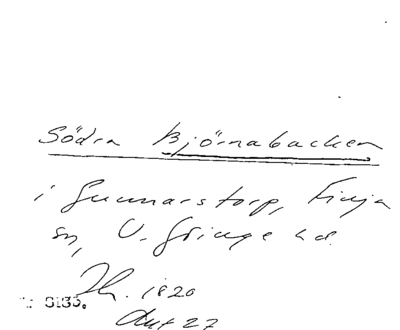 Södra Björnabacken
i Gunnarstorp, Finja
sn, V. Göinge hd.
Th. 1820
Aut 27